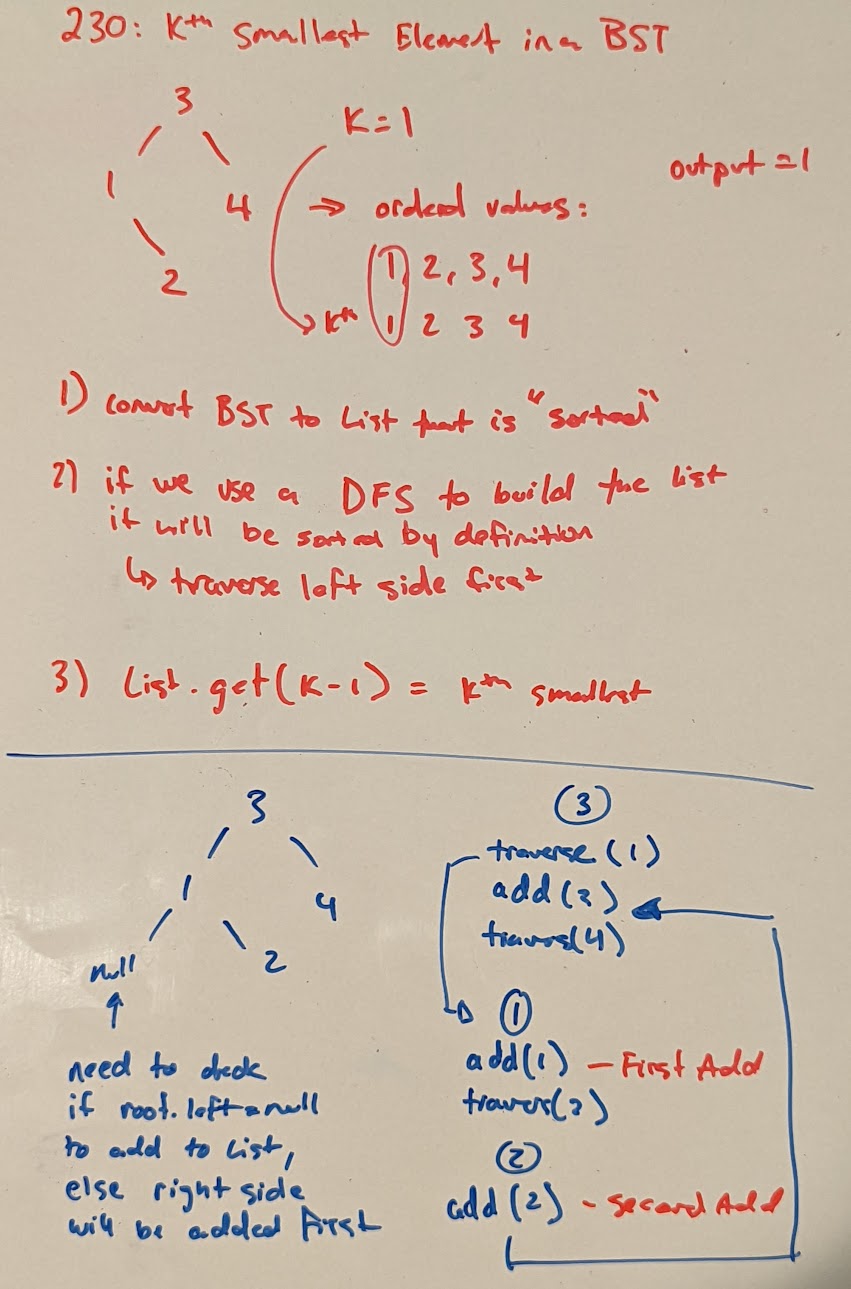 230: Kth Smallest Element in a BST
3
K=1
output = 1
1
4
→ ordered values:
2
1, 2, 3, 4
Kth 1 2 3 4
1) convert BST to List that is "sorted"
2) if we use a DFS to build the list
it will be sorted by definition
↳ traverse left side first
3) List.get(K-1) = Kth smallest
3
1
4
null
2
need to check
if root.left = null
to add to list,
else right side
will be added First
③
traverse(1)
add(3)
travers(4)
①
add(1) - First Add
travers(2)
②
add(2) - Second Add